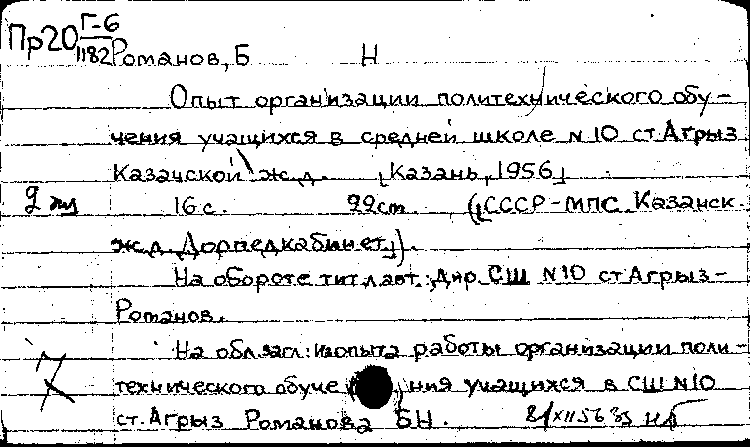 Пр20 Г-6
1182 Романов, Б Н
Опыт организации политехнического обу-
чения учащихся в средней школе N 10 ст. Агрыз
Казанской ж.д. [Казань, 1956]
2 экз 16 с. 22 см. ([СССР-МПС. Казанск.
ж.д. Дорпедкабинет]).
На обороте тит. л. авт.: Дир. СШ N 10 ст Агрыз-
Романов.
На обл. загл: Из опыта работы организации поли-
технического обуче ния учащихся в СШ N 10
ст. Агрыз Романова БН.